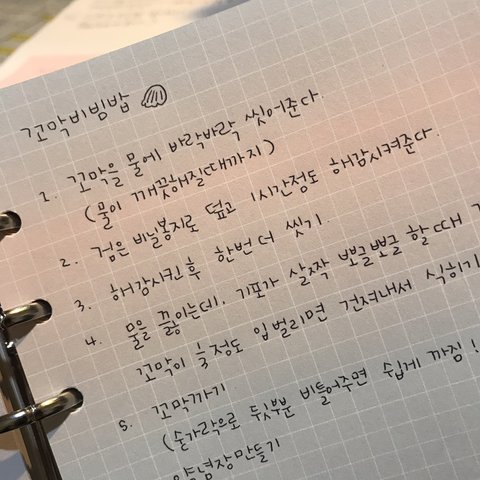 꼬막비빔밥
1. 꼬막을 물에 바락바락 씻어준다.
(물이 깨끗해질때까지)
2. 검은 비닐봉지로 덮고 1시간정도 해감시켜준다.
3. 해감시킨 후 한번 더 씻기.
4. 물을 끓이는데, 기포가 살짝 뽀글뽀글 할 때
꼬막이 훌정도 입벌리면 건져내서 식히기
5. 꼬막까기
(숟가락으로 뒷부분 비틀어주면 쉽게 까짐!
양념장만들기